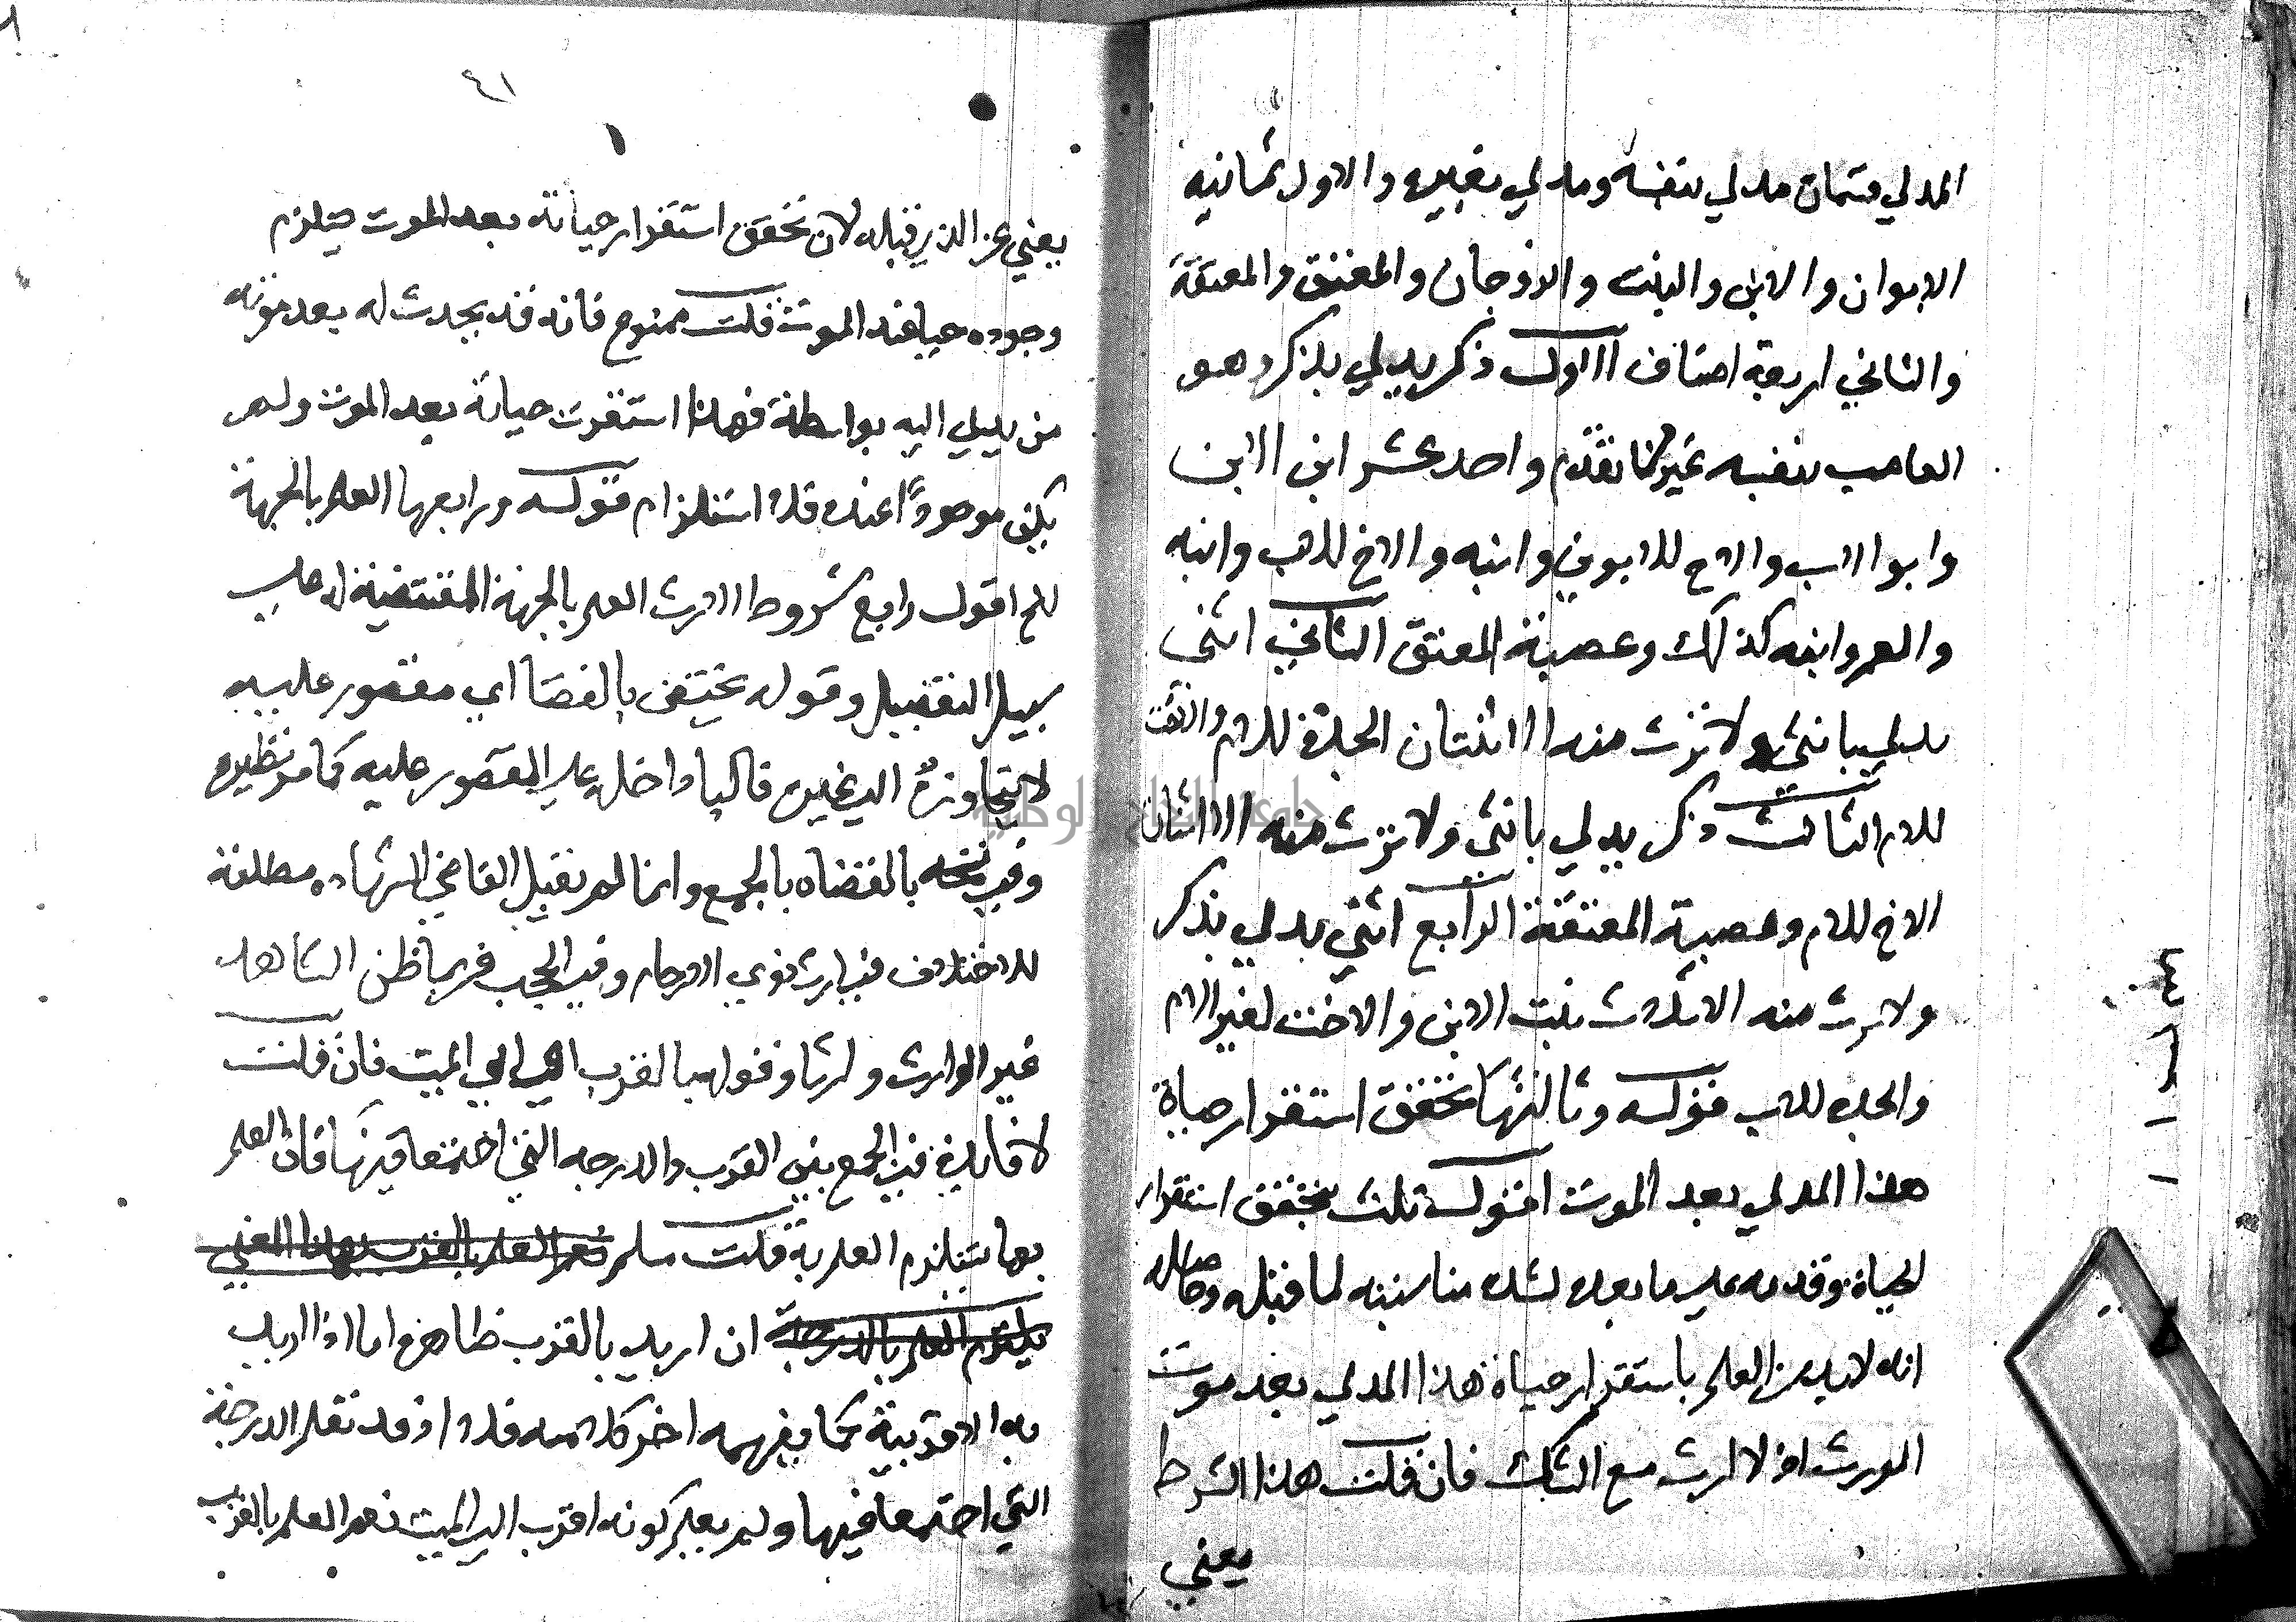 المدلي قسمان مدلي بنفسه ومدلي بغيره والاول ثمانيه
الابوان والابن والبنت والزوجان والمعتق والمعتقة
والثاني اربعة اصناف الاول ذكر يدلي بذكر وهو
العاصب بنفسه غير ما تقدم واحد عشر ابن الابن
وابو الاب والاخ للابوين وابنه والاخ للاب وابنه
والعم وابنه كذلك وعصبة المعتق الثاني انثى
يدلي بانثى ولا ترث منه الا اثنتان الجدة للام والاخت
للام الثالث ذكر يدلي بانثى ولا يرث منه الا اثنان
الاخ للام وعصبة المعتقة الرابع انثى يدلي بذكر
ولا يرث منه الا ثلاث بنت الابن والاخت لغير الام
والجده للاب قوله وثالثها تحقق استقرار حياة
هذا المدلي بعد الموت اقول ثلث بتحقق استقرار
الحياة وقدمه على ما بعده لشدة مناسبته لما قبله وحاصله
انه لا بد من العلم باستقرار حياة هذا المدلي بعد موت
المورث اذ لا ارث مع الشك فان قلت هذا الشرط
يعني
٤١
يغني عن الذي قبله لان تحقق استقرار حياته بعد الموت يستلزم
وجوده حيا عند الموت قلت ممنوع فانه قد يحدث له بعد موته
من يدلي اليه بواسطة فهذا استقرت حياته بعد الموت ولم
يكن موجودًا عنده فلا استلزام قوله ورابعها العلم بالجهة
الخ اقول رابع شروط الارث العلم بالجهة المقتضية له على
سبيل التفصيل وقوله يختص بالقضا اي مقصور عليه
لا يتجاوزه الى غيره فالبا داخل على المقصور عليه كما مر نظيره
وفي نسخه بالقضاه بالجمع وانما لم يقبل القاضي الشهاده مطلقة
للاختلاف في ارث ذوي الارحام وفي الحجب فربما ظن الشاهد
غير الوارث وارثا وقوله بالقرب اي الى الميت فان قلت
لا فايدة في الجمع بين القرب والدرجه التي اجتمعا فيها فان العلم
بها يستلزم العلم به قلت مسلم نعم العلم بالقرب بهذا المعني
يستلزم العلم بالدرجة ان اريد بالقرب ظاهره اما اذا اريد
به الاقربية كما يفهمه اخر كلامه فلا اذ قد تعلم الدرجة
التي اجتمعا فيها ولم يعلم كونه اقرب الى الميت نعم العلم بالقرب